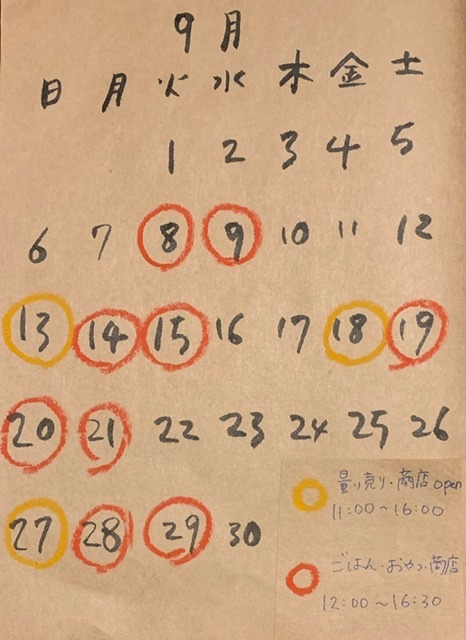 9月
日 月 火 水 木 金 土
1 2 3 4 5
6 7 8 9 10 11 12
13 14 15 16 17 18 19
20 21 22 23 24 25 26
27 28 29 30
量り売り・商店 open
11:00～16:00
ごはん・おやつ・商店
12:00～16:30